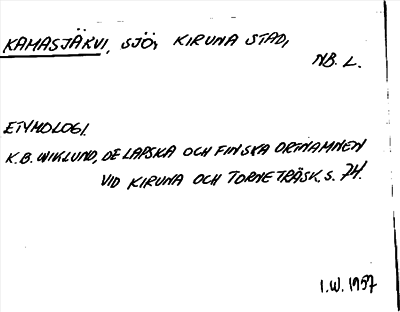 KAMASJÄKVI, SJÖ, KIRUNA STAD,
NB. L.
ETYMOLOGI.
K.B. WIKLUND, DE LAPSKA OCH FINSKA ORTNAMNEN
VID KIRUNA OCH TORNETRÄSK. S. 74.
I.W. 1957